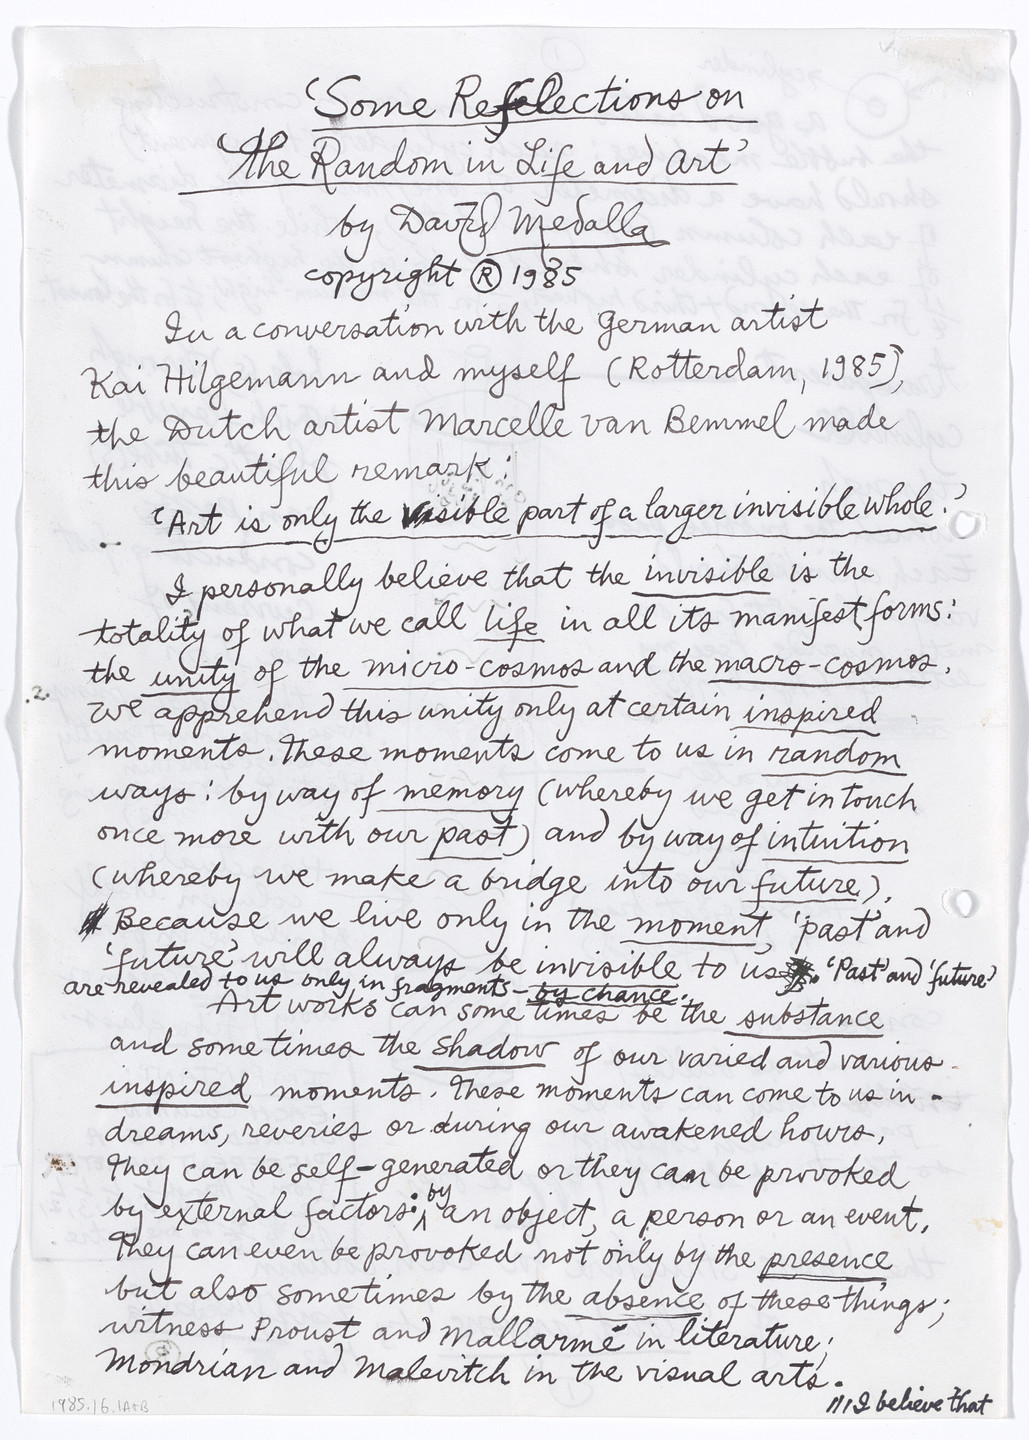 'Some Reflections on
'The Random in Life and Art'
by David Medalla
copyright ® 1985
In a conversation with the German artist
Kai Hilgemann and myself (Rotterdam, 1985),
the Dutch artist Marcelle van Bemmel made
this beautiful remark:
'Art is only the visible part of a larger invisible whole.'
I personally believe that the invisible is the
totality of what we call life in all its manifest forms:
the unity of the micro-cosmos and the macro-cosmos.
.2.
We apprehend this unity only at certain inspired
moments. These moments come to us in random
ways: by way of memory (whereby we get in touch
once more with our past) and by way of intuition
(whereby we make a bridge into our future).
Because we live only in the moment, 'past' and
'future' will always be invisible to us. 'Past' and 'future'
are revealed to us only in fragments - by chance.
Art works can sometimes be the substance
and sometimes the shadow of our varied and various
inspired moments. These moments can come to us in -
dreams, reveries or during our awakened hours.
They can be self-generated or they can be provoked
by external factors: by an object, a person or an event.
They can even be provoked not only by the presence
but also sometimes by the absence of these things;
witness Proust and Mallarmé in literature;
Mondrian and Malevitch in the visual arts.
I believe that
1985.16.1A+B